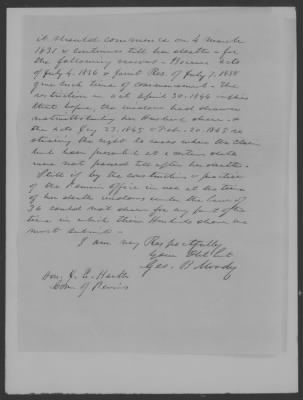 it should commence on 4 March
1831 & continue till her death - for
the following reasons - Because acts
of July 4. 1836 & Joint Res. of July 7, 1838
give such time of commencement - The
restriction in act April 30. 1844 - was
that before, the widows had drawn
notwithstanding her Husband drew - &
the acts Jany 23. 1865 & Feb. 20. 1865 re
stricting the right to cases where the claim
had been presented at a certain date
were not passed till after her death.
Still if by the construction & practice
of the Pension Office in use at the time
of her death widows under the law of
36 could not draw for any part of the
time in which their Husbands drew we
must submit -
I am very Respectfully
Your Obt Svt
Geo. B Moody
Hon. J. A.
Com of Pensions